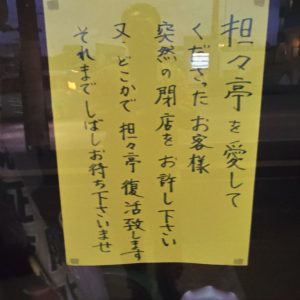 担々亭を愛して
くださったお客様
突然の閉店をお許し下さい
又、どこかで担々亭復活致します
それまでしばしお待ち下さいませ